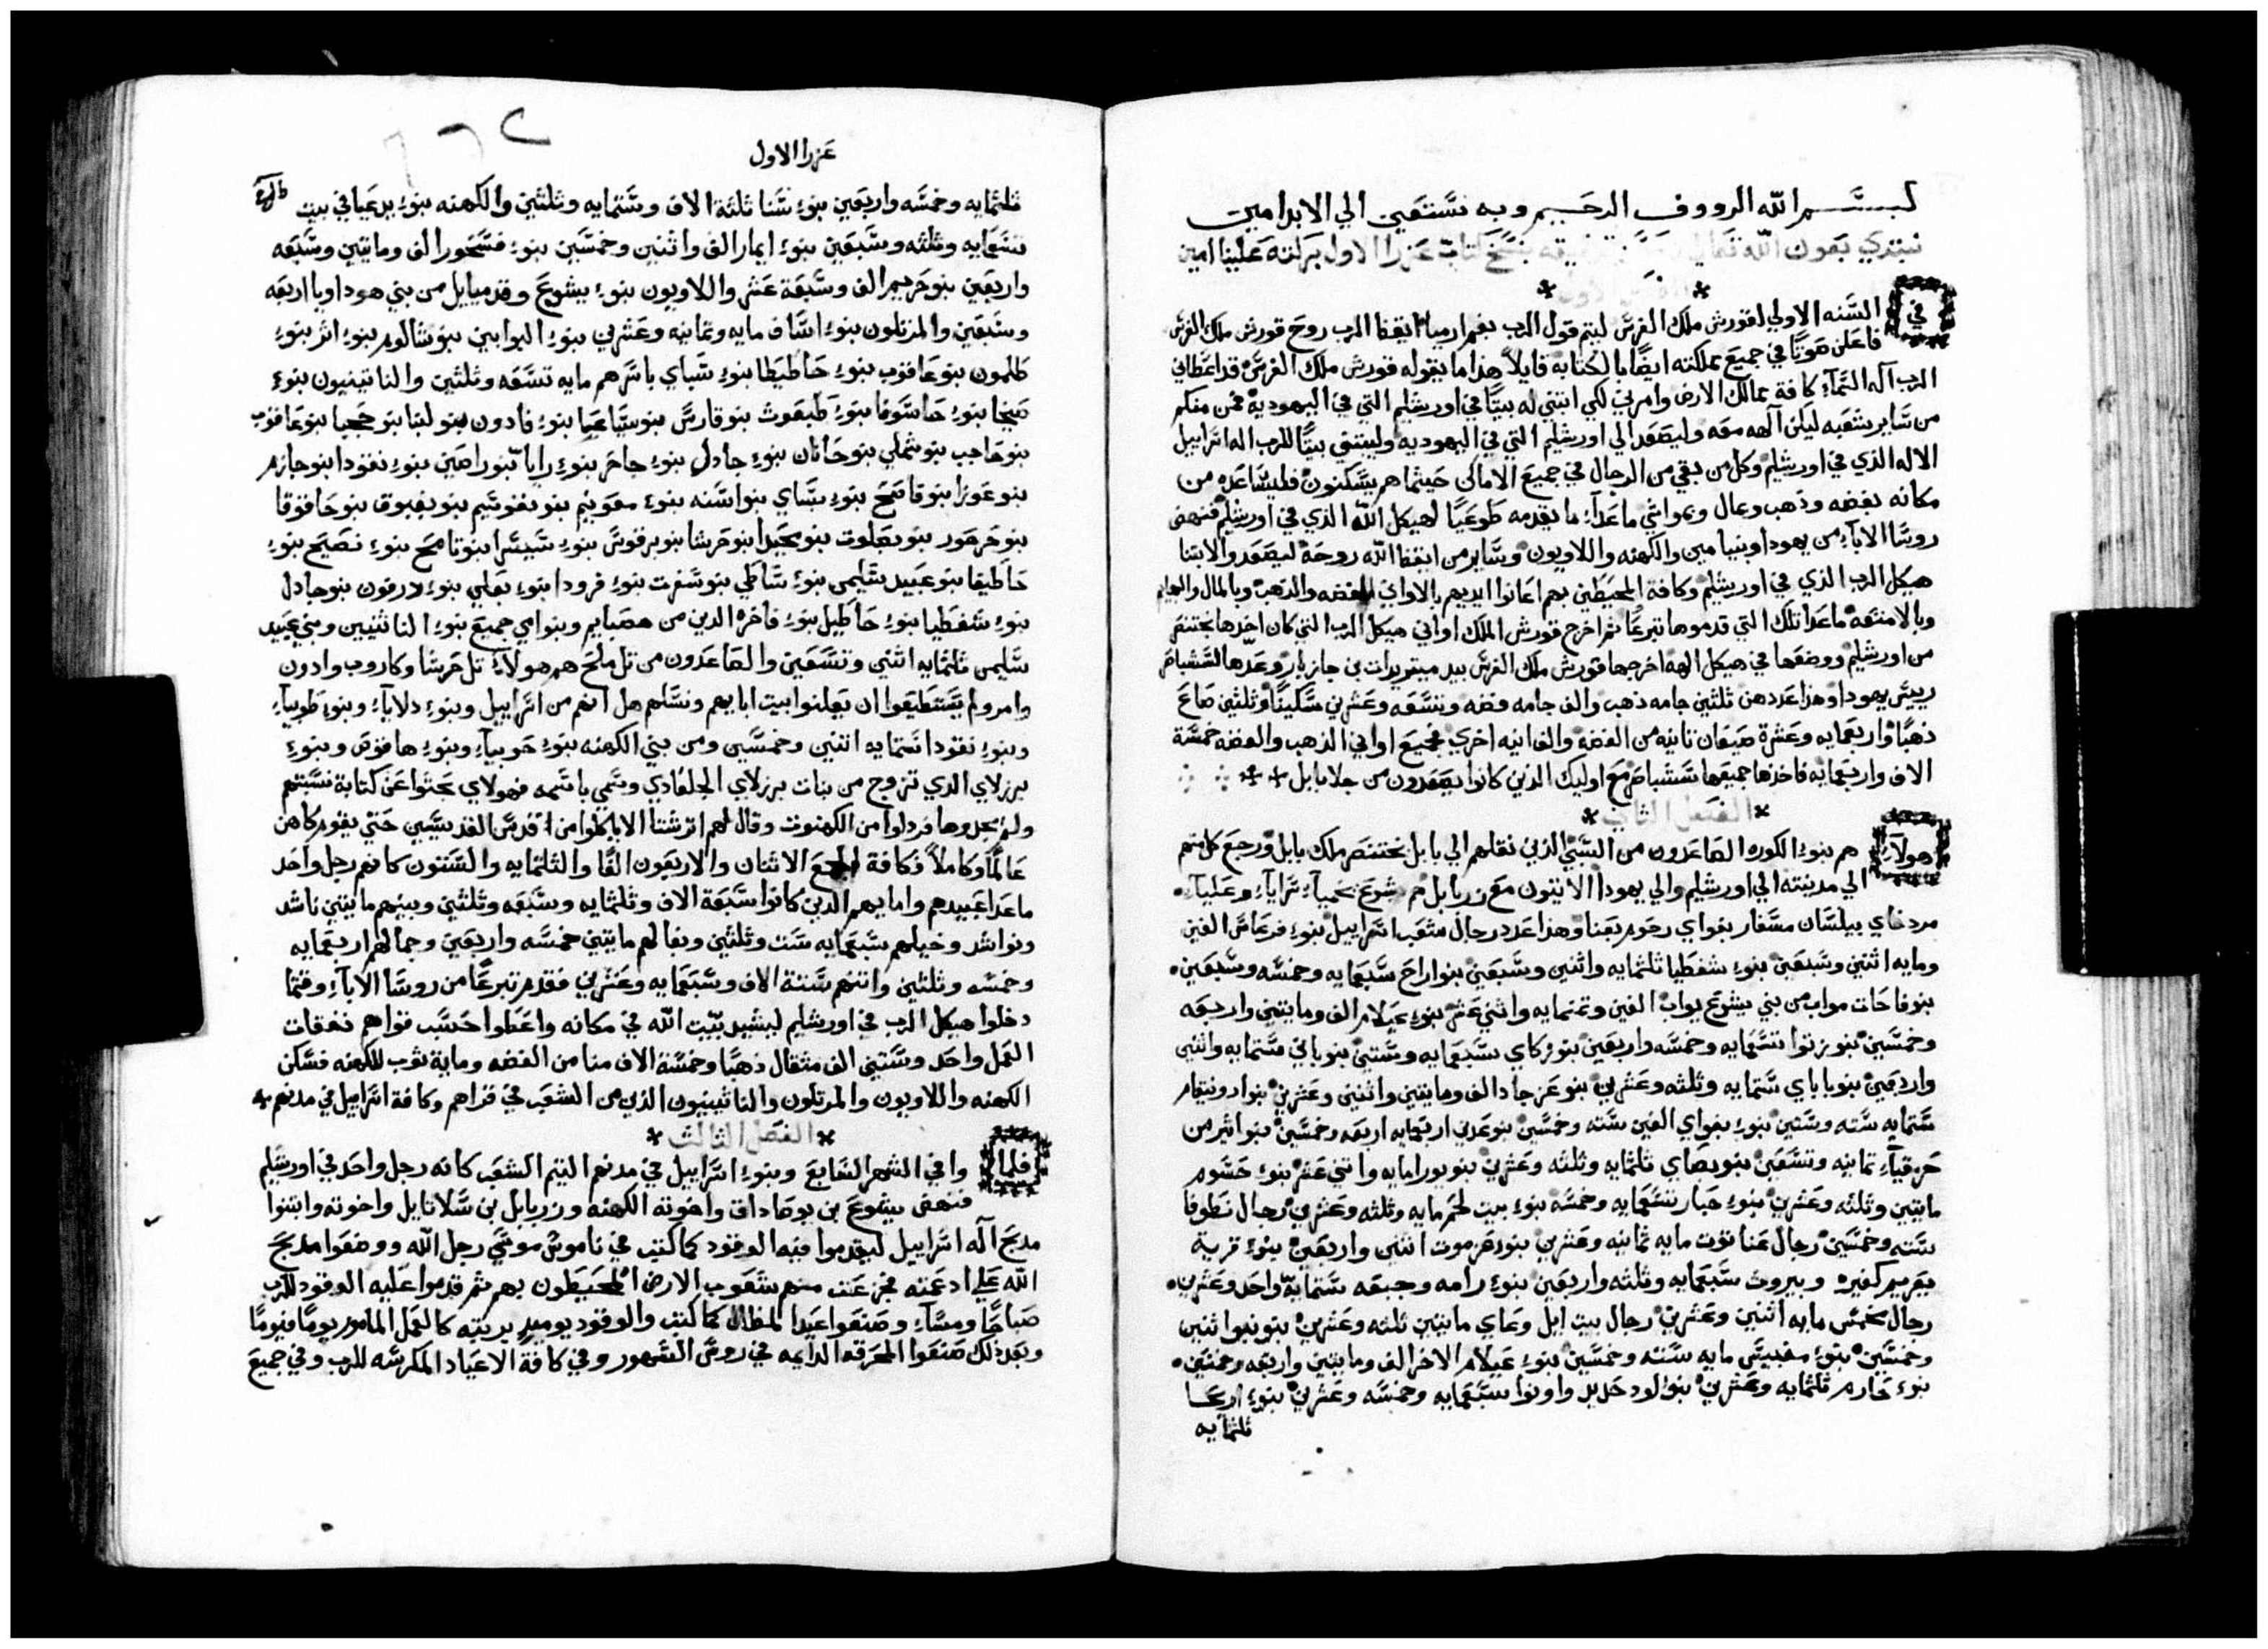 بسم الله الرووف الرحيم وبه نستعين الي الابد امين
نبتدي بعون الله تعالي بنسخ كتاب عزرا الاول بركته علينا امين
في السنه الاولي لقورش ملك الفرس ليتم قول الرب بفم ارميا ايقظ الرب روح قورش ملك الفرس
فاعلن صوتًا في جميع مملكته ايضًا بالكتابه قايلاً هذا ما يقوله قورش ملك الفرس قد اعطاني
الرب اله السمآء كافة ممالك الارض وامرني لكي ابتني له بيتًا في اورشليم التي في اليهودية فمن منكم
من ساير شعبه ليكن الهه معه وليصعد الي اورشليم التي في اليهوديه وليبتني بيتًا للرب اله اسراييل
الاله الذي في اورشليم وكل من بقي من الرجال في جميع الاماكن حيثما هم يسكنون فليساعده من
مكانه بفضه وذهب ومال ومواشي ما عدآء ما يقدمه طوعيًا لهيكل الله الذي في اورشليم فنهض
روسا الابآء من يهودا وبنيامين والكهنه واللاويون وساير من ايقظ الله روحه ليصعد والابتنا
هيكل الرب الذي في اورشليم وكافة المحيطين بهم اعانوا ايديهم بالاواني الفضه والذهب وبالمال والبهايم
وبالامتعه ما عدا تلك التي قدموها تبرعًا ثم اخرج قورش الملك اواني هيكل الرب التي كان اخذها بختنصر
من اورشليم ووضعها في هيكل الهه اخرجها قورش ملك الفرس بيد ميتريدات بن جازبار وعدها لششباصر
رييس يهودا وهذا عددهن ثلثين جامه ذهب والف جامه فضه وتسعه وعشرين سكينًا وثلثين صاع
ذهبًا واربعمايه وعشرة صيعان ثانيه من الفضه والف انيه اخري فجميع اواني الذهب والفضه خمسة
الاف واربعمايه فاخذها جميعها ششباصر مع اوليك الذين كانوا يصعدون من جلا بابل
الفصل الثاني
هولآء هم بنوء الكوره الصاعدون من السبي الذين نقلهم الي بابل بختنصر ملك بابل ورجع كل منهم
الي مدينته الي اورشليم والي يهودا الاتتون مع زربابل هم يشوع نحميآء سرايآء رعليآء
مردخاي بيلسان مسفار بغواي رحوم بعنا وهذا عدد رجال شعب اسراييل بنوء فرعاس الفين
ومايه اثنين وسبعين بنوء شفطيا ثلثمايه واثنين وسبعين بنو اراح سبعمايه وخمسه وسبعين
بنو فاحات مواب من بني يشوع يواب الفين وثمنمايه واثني عشر بنوء عيلام الف ومايتين واربعه
وخمسين بنو زتوا تسعمايه وخمسه واربعين بنو زكاي سبعمايه وستين بنو باني ستمايه واثنين
واربعين بنو باباي ستمايه وثلثه وعشرين بنو عزجاد الف ومايتين واثنين وعشرين بنو ادونيقام
ستمايه سته وستين بنوء بغواي الفين سته وخمسين بنو عدين اربعمايه اربعه وخمسين بنو اثير من
حزقيآء ثمانيه وتسعين بنو بصاي ثلثمايه وثلثه وعشرين بنو يورا مايه واثني عشر بنوء حشوم
مايتين وثلثه وعشرين بنوء جبار تسعمايه وخمسه بنوء بيت لحم مايه وثلثه وعشرين رجال نطوفا
سته وخمسين رجال عناثوت مايه ثمانيه وعشرين بنو عزموت اثنين واربعين بنوء قرية
يعريم كفيره وبيروث سبعمايه وثلثه واربعين بنوء رامه وجبعه ستمايه واحد وعشرين
رجال مخمس مايه اثنين وعشرين رجال بيت ايل وعاي مايتين ثلثه وعشرين بنو نبوا اثنين
وخمسين بنوء مغبيس مايه سته وخمسين بنوء عيلام الاخر الف ومايتين واربعه وخمسين
بنوء حارم ثلثمايه وعشرين بنوء لود حديد واونوا سبعمايه وخمسه وعشرين بنوء اريحا
ثلثمايه
عزرا الاول
ثلثمايه وخمسه واربعين بنوء سنا ثلثة الاف وستمايه وثلثين والكهنه بنوء يدعيا في بيت
تسعمايه وثلثه وسبعين بنوء ايمار الف واثنين وخمسين بنوء فسحور الف ومايتين وسبعه
واربعين بنو حريم الف وسبعة عشر واللاويون بنوء يشوع وقدميايل من بني هوداويا اربعه
وسبعين والمرتلون بنوء اساف مايه وثمانيه وعشرين بنوء البوابين بنو شالوم بنوء اثر بنوء
طلمون بنو عاقوب بنوء حاطيطا بنوء سباي باسرهم مايه تسعه وثلثين والناثينيون بنوء
صيحا بنوء حاسوفا بنوء طبعوث بنو قارس بنو سياعا بنوء فادون بنو لبنا بنو حجبا بنو عاقوب
بنو حاجب بنو شملي بنو حانان بنوء جادل بنوء جاحر بنوء رايا بنو راصين بنوء نقودا بنو جازم
بنو عوزا بنو فاسح بنوء بساي بنو اسنه بنوء معونيم بنو نفوسيم بنو بقبوق بنو حاقوفا
بنو حرحور بنو بصلوت بنو محيدا بنو حرشا بنو برقوس بنوء سيسرا بنو تامح بنوء نصيح بنوء
حاطيفا بنو عبيد سليمن بنوء ساطي بنو سفرت بنوء فرودا بنوء يعلي بنوء درقون بنو جادل
بنوء شفطيا بنوء حاطيل بنوء فاخره الذين من هصبايم وبنو امي جميع بنوء الناثنيين وبني عبيد
سليمن ثلثمايه اثنين وتسعين والصاعدون من تل ملح هم هولآء تل حرشا وكاروب وادون
وامر ولم يستطيعوا ان يعلنوا بيت ابايهم ونسلهم هل انهم من اسراييل وبنوء دلايآء وبنوء طوبيآء
وبنوء نقودا ستمايه اثنين وخمسين ومن بني الكهنه بنوء حوبيآء وبنوء هاقوص وبنوء
برزلاي الذي تزوج من بنات برزلاي الجلعادي وسمي باسمه فهولاي بحثوا عن كتابة نسبتهم
ولم يجدوها فرذلوا من الكهنوت وقال لهم اترشتا الا ياكلوا من قدس القديسين حتي يقوم كاهن
عالمًا وكاملاً فكافة الجمع الاثنان والاربعون الفًا والثلثمايه والستون كانهم رجل واحد
ما عدا عبيدهم وامايهم الذين كانوا سبعة الاف وثلثمايه وسبعه وثلثين وبينهم مايتين ناشد
ونواشد وخيلهم سبعمايه ست وثلثين وبغالهم مايتين خمسه واربعين وجمالهم اربعمايه
وخمسه وثلثين واتنهم ستة الاف وسبعمايه وعشرين فقدم تبرعًا من روسا الابآء وقتما
دخلوا هيكل الرب في اورشليم لبشيد بيت الله في مكانه واعطوا حسب قواهم نفقات
العمل واحد وستين الف مثقال ذهبًا وخمسة الاف منا من الفضه وماية ثوب للكهنه فسكن
الكهنه واللاويون والمرتلون والناثينيون الذين من الشعب في قراهم وكافة اسراييل في مدنهم
الفصل الثالث
فلما وافي الشهر السابع وبنوء اسراييل في مدنهم التيم الشعب كانه رجل واحد في اورشليم
فنهض يشوع بن يوصاداق واخوته الكهنه وزربابل بن سلاتايل واخوته وابتنوا
مذبح اله اسراييل ليقدموا فيه الوقود كما كتب في ناموس موسي رجل الله ووضعوا مذبح
الله علي ادعمته فجزعت منهم شعوب الارض المحيطون بهم ثم قدموا عليه الوقود للرب
صباحًا ومسآء وصنعوا عيد المظال كما كتب والوقود يوميد بريته كالعمل المامور يومًا فيومًا
وبعد ذلك صنعوا المحرقه الدايمه في روس الشهور وفي كافة الاعياد المكرسه للرب وفي جميع